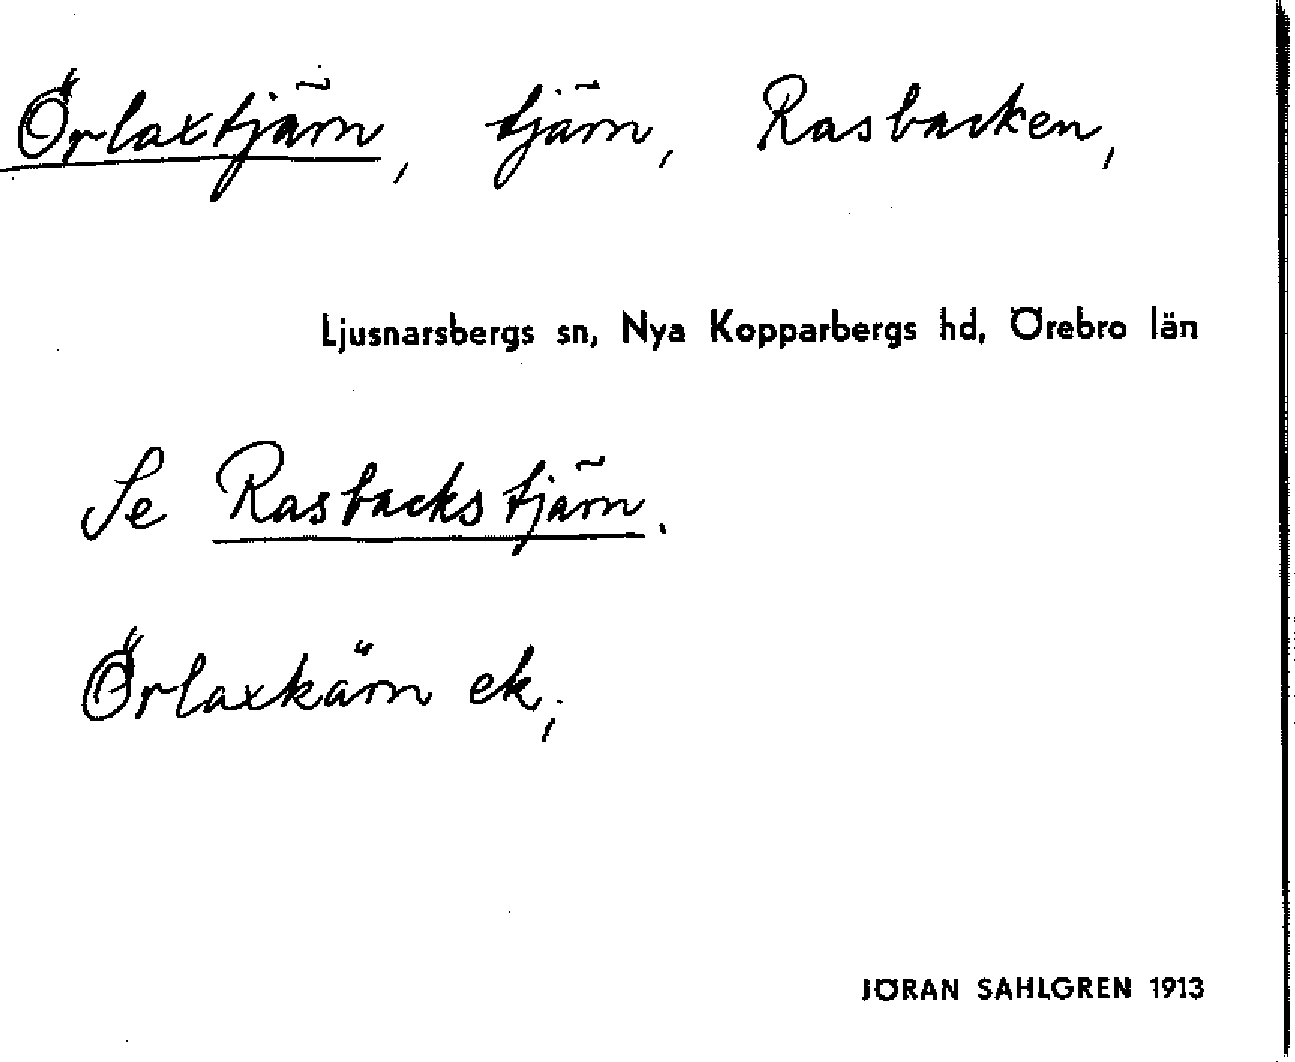 Örlaxtjärn, tjärn, Rasbacken,
Ljusnarsbergs sn, Nya Kopparbergs hd, Örebro län
Se Rasbackstjärn.
Örlaxkärn ek,
JÖRAN SAHLGREN 1913